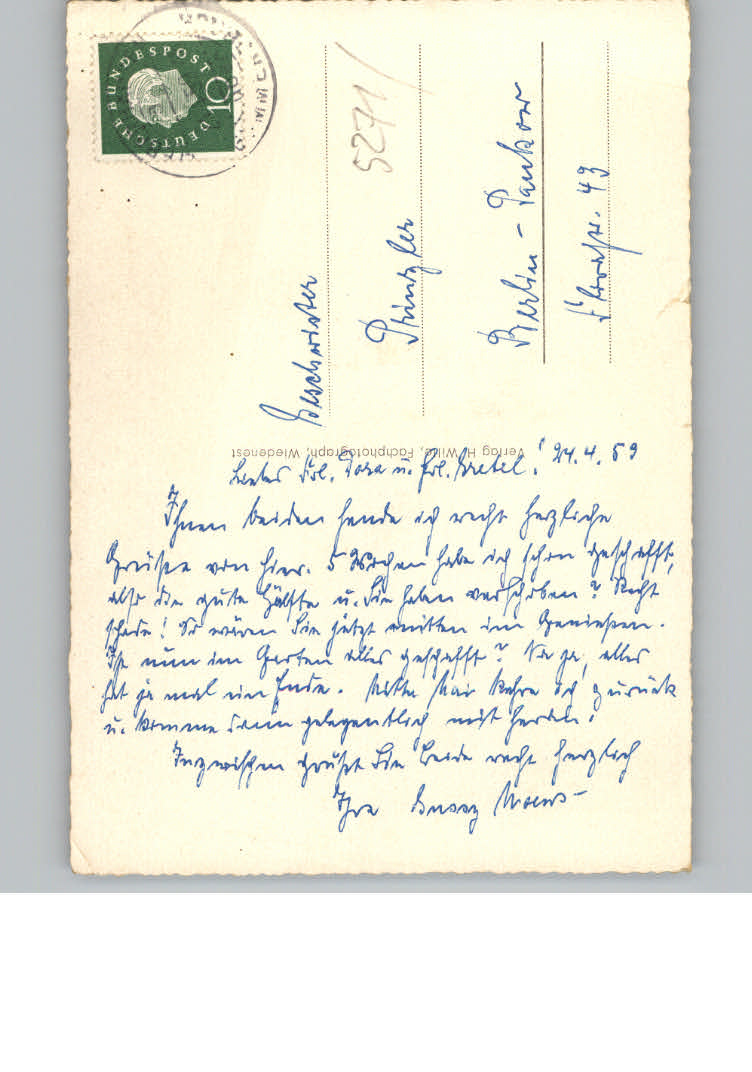 DEUTSCHE BUNDESPOST
10
5271/
Geschwister
Prinzler
Berlin - Pankow
Florastr. 43
Verlag H. Wille, Fachphotograph, Wiedenest
Liebes Frl. Dora u. Frl. Gretel! 24.4.59
Ihnen beiden sende ich recht herzliche
Grüsse von hier. 5 Wochen habe ich schon geschafft,
also die gute Hälfte u. Sie haben verschoben? Recht
schade! So wären Sie jetzt mitten im Geniessen.
Ist nun im Garten alles geschafft? Na ja, alles
hat ja mal ein Ende. Mitte Mai kehre ich zurück
u. komme dann gelegentlich mit heran.
Inzwischen grüsst Sie beide recht herzlich
Ihre